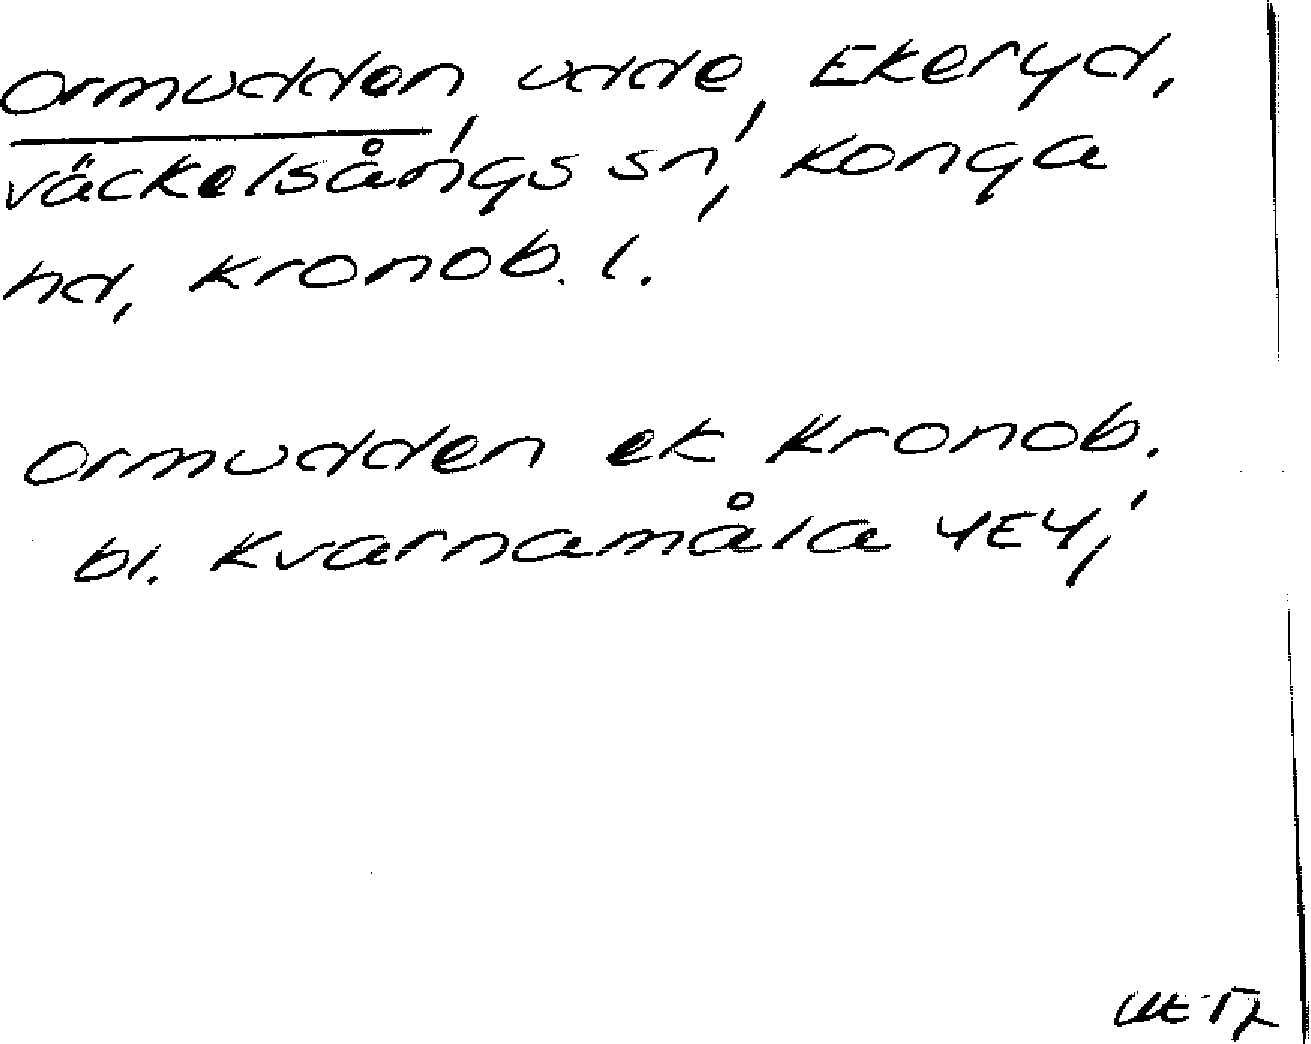 Ormudden, udde, Ekeryd,
Väckelsångs sn, Konga
hd, Kronob. l.
Ormudden ek Kronob.
bl. Kvarnamåla 4E4;